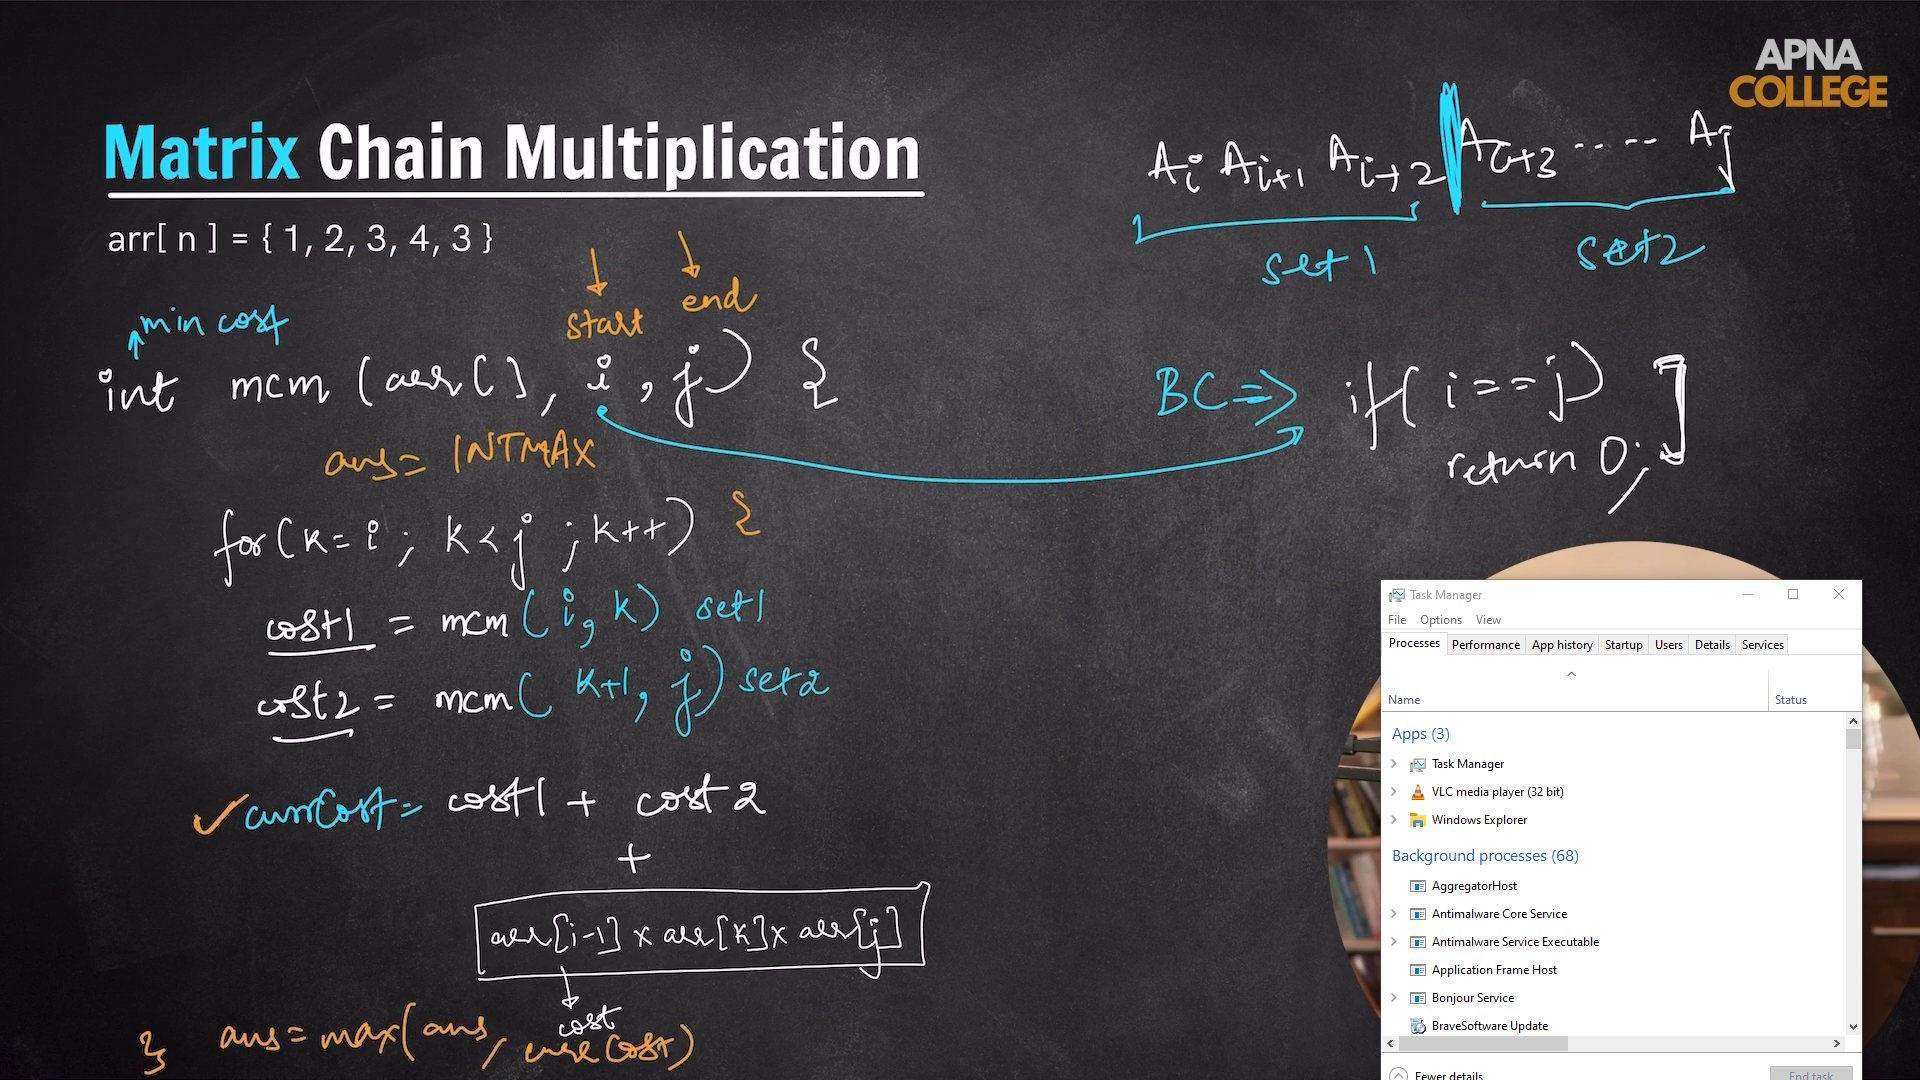 APNA
COLLEGE
Matrix Chain Multiplication
arr[ n ] = { 1, 2, 3, 4, 3 }
Ai Ai+1 Ai+2 Ai+3 ..... Aj
set 1
set2
min cost
start
end
int mcm (arr[], i, j) {
BC => if( i == j)
return 0;
ans = INTMAX
for(k= i ; k<j ; k++) {
cost1 = mcm( i, k) set1
cost2 = mcm( k+1, j) set2
currCost = cost1 + cost2
+
arr[i-1] x arr[k] x arr[j]
cost
} ans = max(ans, currCost)
Task Manager
File Options View
Processes Performance App history Startup Users Details Services
Name Status
Apps (3)
Task Manager
VLC media player (32 bit)
Windows Explorer
Background processes (68)
AggregatorHost
Antimalware Core Service
Antimalware Service Executable
Application Frame Host
Bonjour Service
BraveSoftware Update
Fewer details End task